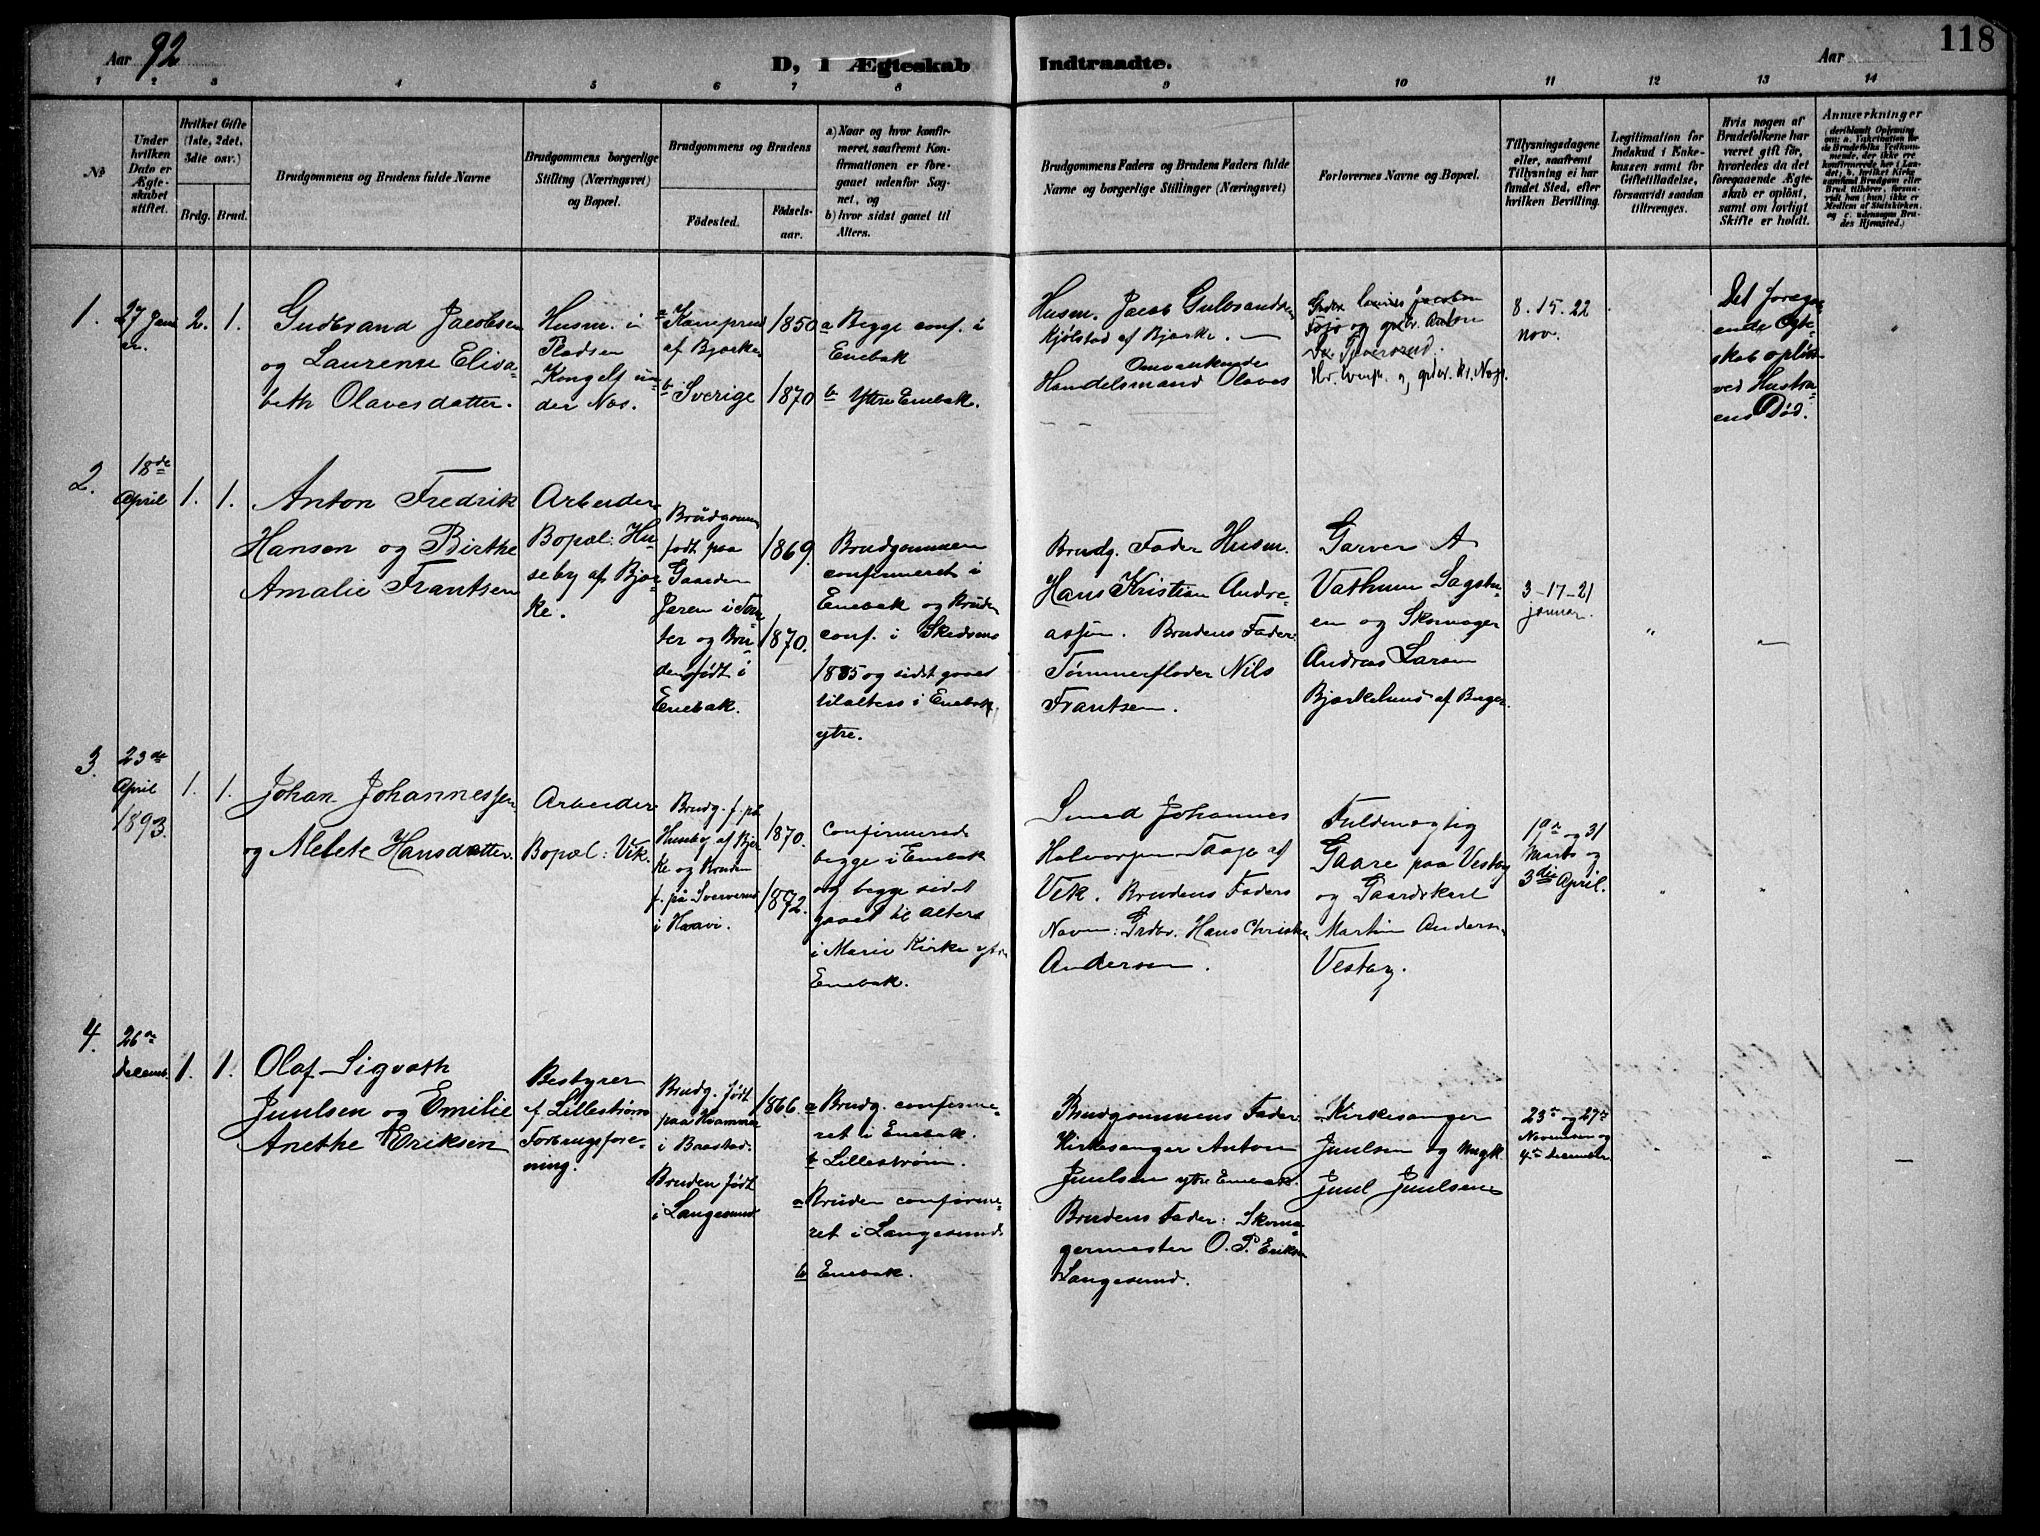 118
Aar 92
D, i Ægteskab Indtraadte.
Aar
1 2 3 4 5 6 7 8 9 10 11 12 13 14
№
Under hvilken Dato er Ægteskabet stiftet.
Hvilket Gifte (1ste, 2det, 3die osv.)
Brdg. Brud.
Brudgommens og Brudens fulde Navne
Brudgommens borgerlige Stilling (Næringsvei) og Bopæl.
Brudgommens og Brudens
Fødested. Fødsels-aar.
a) Naar og hvor konfirmeret, saafremt Konfirmationen er foregaaet udenfor Sognet, og
b) hvor sidst gaaet til Alters.
Brudgommens Faders og Brudens Faders fulde Navne og borgerlige Stillinger (Næringsvei)
Forlovernes Navne og Bopæl.
Tillysningsdagene eller, saafremt Tillysning ei har fundet Sted, efter hvilken Bevilling.
Legitimation for Indskud i Enkekassen samt for Giftetilladelse, forsaavidt saadan tiltrænges.
Hvis nogen af Brudefolkene har været gift før, hvorledes da det foregaaende Ægteskab er opløst, samt om lovligt Skifte er holdt.
Anmærkninger
1.
27 Januar.
2. 1.
Gudbrand Jacobsen
og Laurense Elisa-
beth Olavesdatter.
Husm. i
Pladsen
Kongelf un-
der Nos.
a
af Bjerke
b Sverige
1850
1870
a Begge conf. i
Enebak
b Ytre Enebak.
Husm. Jacob Gulbrandsen
Kjølstad af Bjerke. —
Omvankende
Handelsmand Olaves
8. 15. 22
nov.
Det foregaa-
ende Ægte-
skab opløst
ved Hustru-
ens Død.
2.
18de
April
1. 1.
Anton Fredrik
Hansen og Birthe
Amalie Frantsen
Arbeider
Bopæl: Hu-
seby af Bjer-
ke.
Brudgom
født paa
Gaarden
Jeren i
og Bru-
den født i
Enebak.
1869.
1870.
Brudgommen
confirmeret i
Enebak og Bruden
conf. i Skedsmo
1885 og sidst gaaet
til alters i Enebak,
ytre.
Brudg. Fader Husm.
Hans Kristian Andre-
assen. Brudens Fader
Tømmerfløder Nils
Frantsen.
Garver A
Vathum Sagstu-
en og Skomager
Andreas Larsen
Bjerkelund af Burger
3-17-21
januar.
3.
23de
April
1893.
1. 1.
Johan Johannessen
og Melete Hansdatter
Arbeider
Bopæl: Vik.
Brudg. f. på
Huseby af Bjer-
ke og Bruden
f. på
i
1870.
1872.
Confirmerede
begge i Enebak
og begge sidst
gaaet til alters
i Marie Kirke ytre
Enebak.
Smed Johannes
Halvorsen af
Vik. Brudens Faders
Navn: Grdbr. Hans Christian
Andersen.
Fuldmægtig
Gaare paa Vestby
og Gaardskarl
Martin Andersen
Vestby.
og 31
Marts og
3die April.
4.
26de
Decemb.
1. 1.
Olaf Sigvath
Juulsen og Emilie
Anethe Eriksen
Bestyrer
af Lillestrøms
Forbrugsfore-
ning.
Brudg. født
paa
i Baastad.
Bruden født
i Langesund
1866.
a Brudg. confirme-
ret i Enebak.
b Lillestrøm.
a Bruden confirme-
ret i Langesund
b Enebak.
Brudgommens Fader
Kirkesanger Anton
Juulsen ytre Enebak
Brudens Fader: Skoma-
germester O. P. Eriksen
Langesund.
Kirkesanger
Juulsen og Ungk.
Juul Juulsen
23de og 27de
November og
4de December